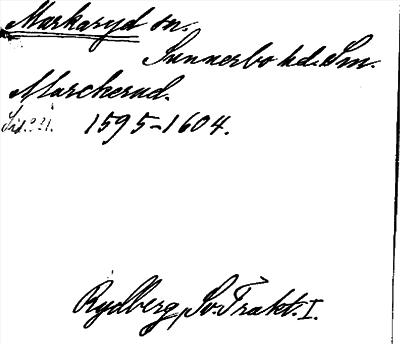 Markaryd sn.
Sunnerbo hd. Sm.
Marckerud.
1595-1604.
Rydberg, Sv. Trakt. I.